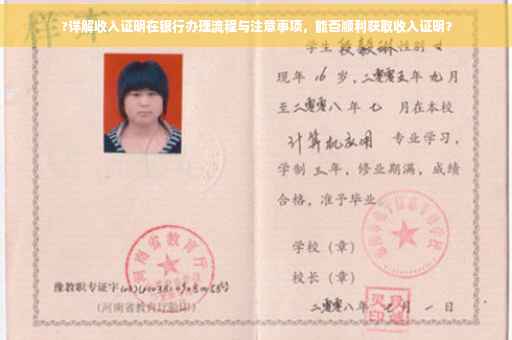 ?详解收入证明在银行办理流程与注意事项，能否顺利获取收入证明?
样本
学生段毅琳性别女
现年16岁，二零零五年九月
至二零零八年七月在本校
计算机应用 专业学习，
学制三年，修业期满，成绩
合格，准予毕业。
学校（章）
校长（章）
二零零八年 月一日
河南省教育厅
豫教职专证字
（河南省教育厅验印）